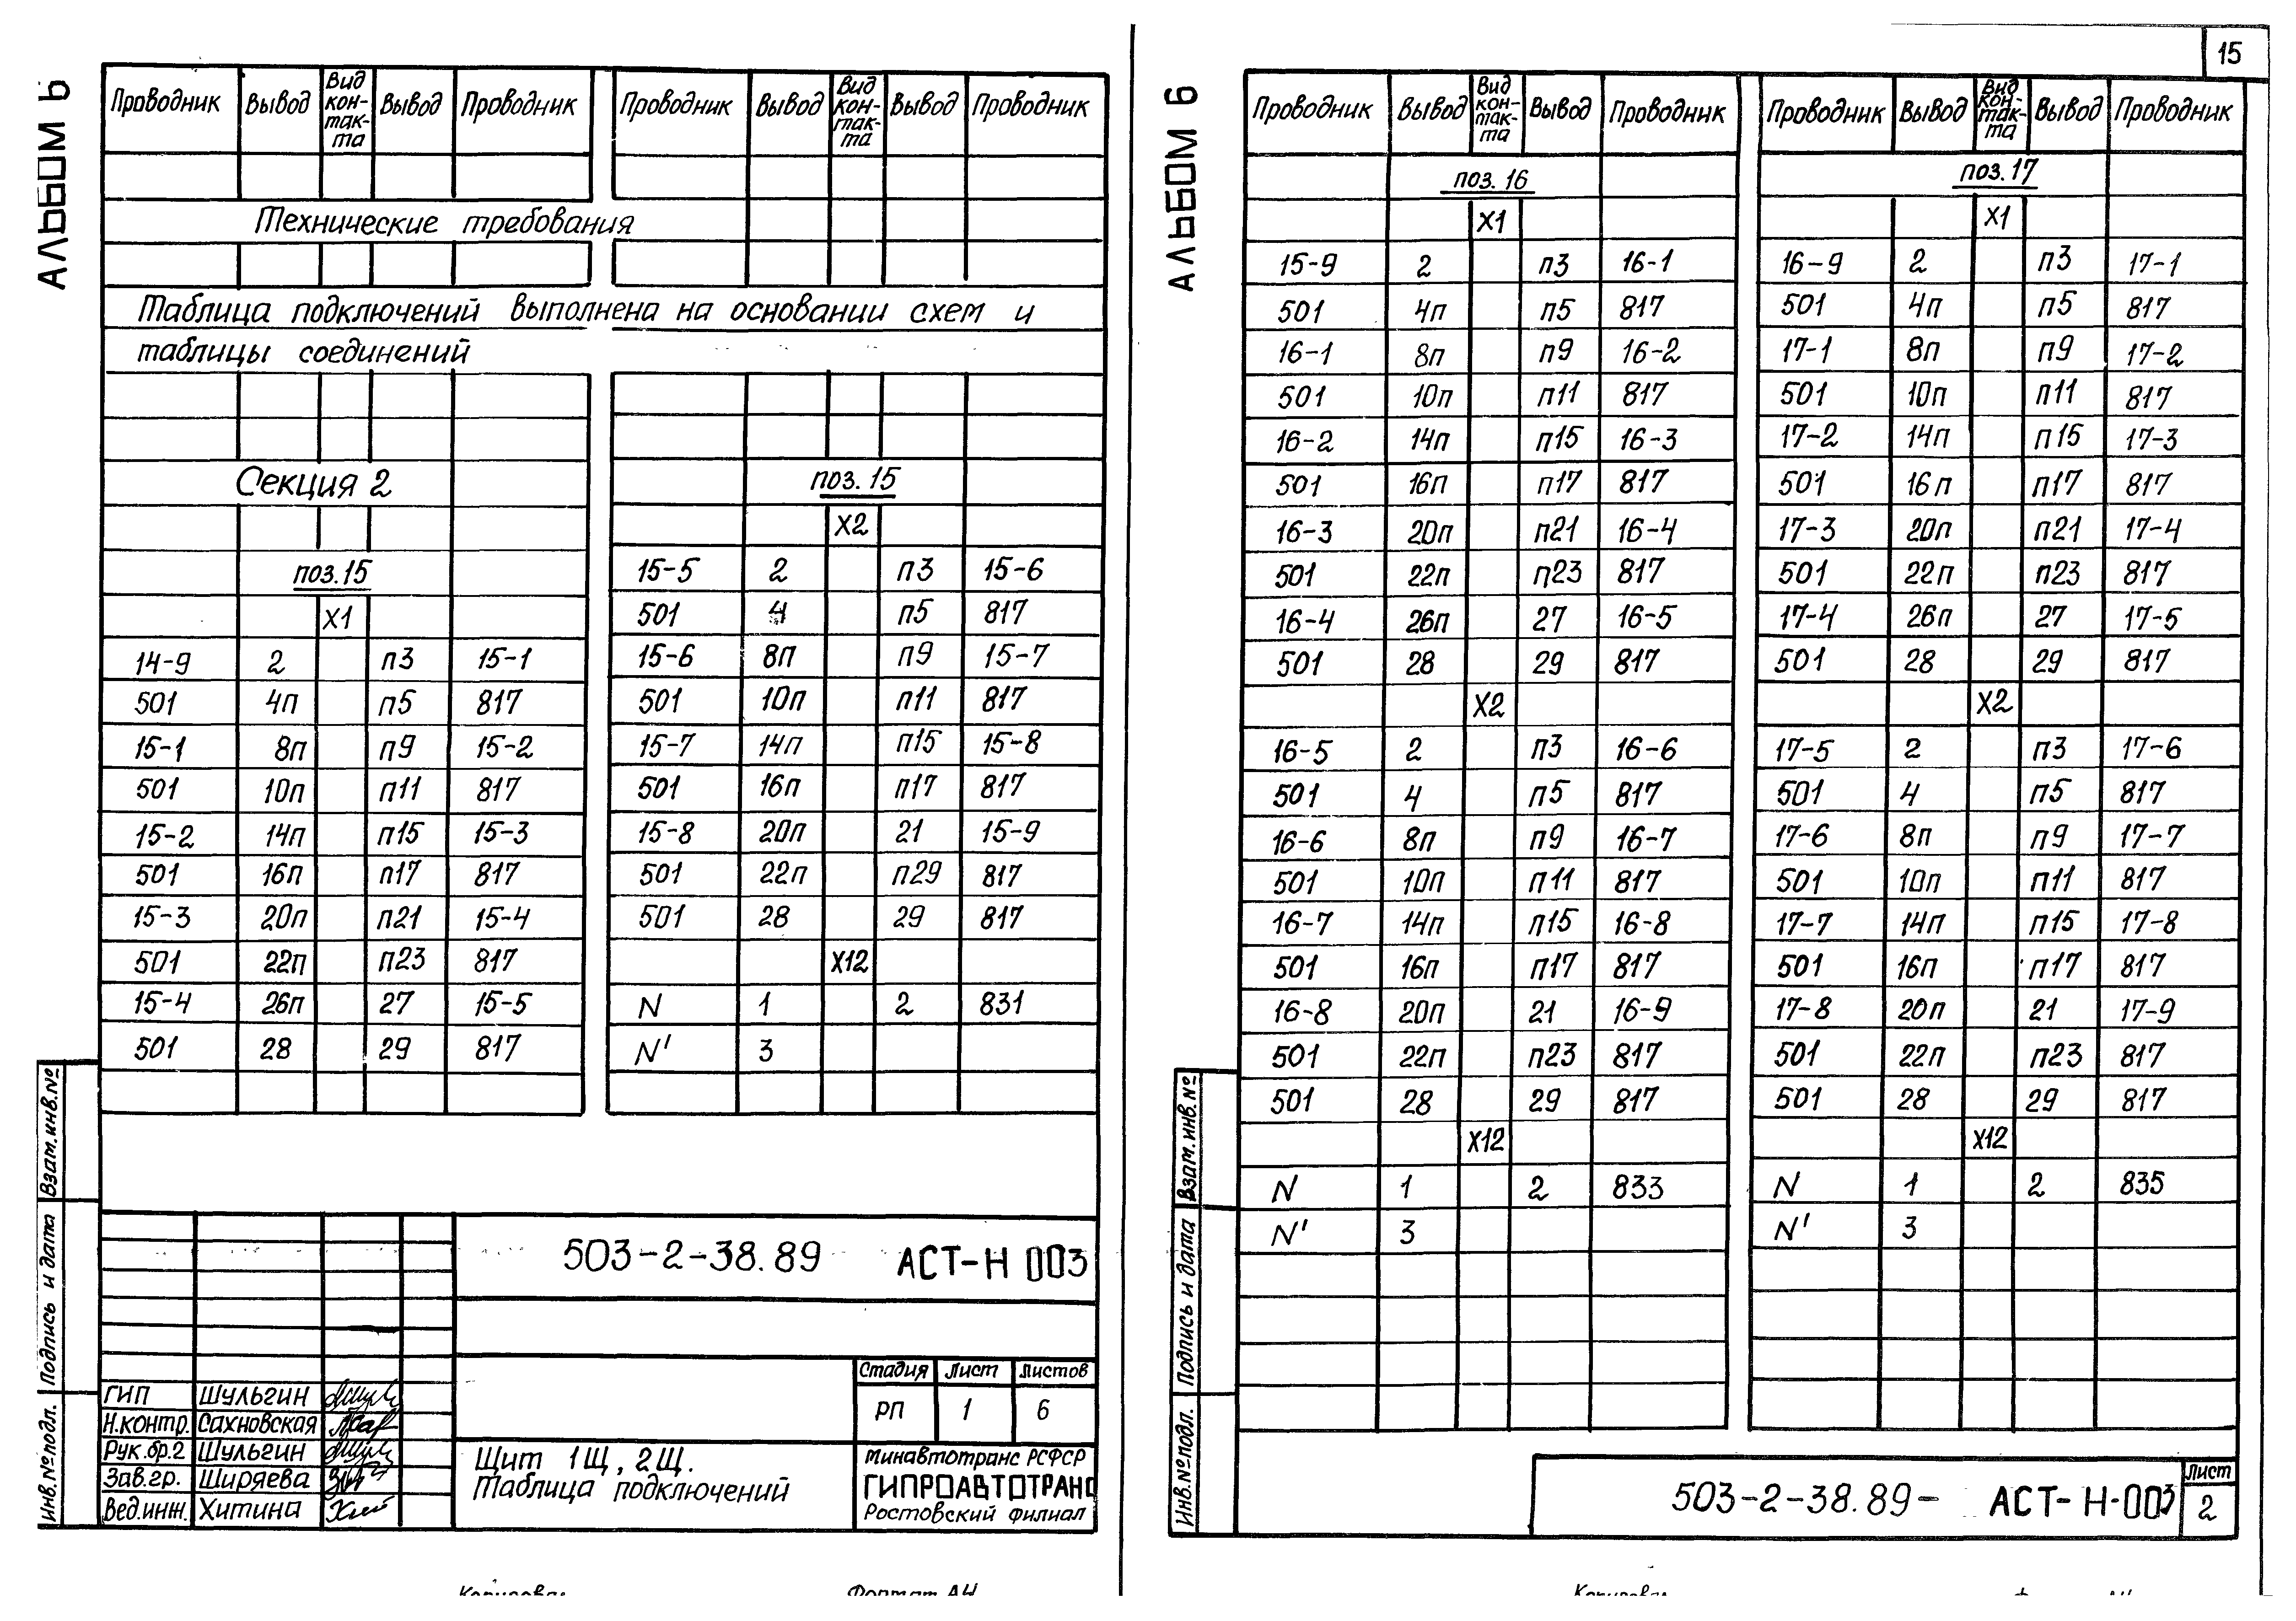 АЛЬБОМ 6
Проводник Вывод Вид кон-так-та Вывод Проводник Проводник Вывод Вид кон-так-та Вывод Проводник
Технические требования
Таблица подключений выполнена на основании схем и
таблицы соединений
Секция 2
поз.15
X1
14-9 2 п3 15-1
501 4п п5 817
15-1 8п п9 15-2
501 10п п11 817
15-2 14п п15 15-3
501 16п п17 817
15-3 20п п21 15-4
501 22п п23 817
15-4 26п 27 15-5
501 28 29 817
поз.15
X2
15-5 2 п3 15-6
501 4 п5 817
15-6 8п п9 15-7
501 10п п11 817
15-7 14п п15 15-8
501 16п п17 817
15-8 20п 21 15-9
501 22п п29 817
501 28 29 817
X12
N 1 2 831
N' 3
Взам.инв.№
Подпись и дата
Инв.№подл.
503-2-38.89 АСТ-Н 003
Стадия Лист Листов
РП 1 6
ГИП Шульгин
Н.контр. Сахновская
Рук.бр.2 Шульгин
Зав.гр. Ширяева
Вед.инж. Хитина
Щит 1Щ, 2Щ.
Таблица подключений
Минавтотранс РСФСР
ГИПРОАВТОТРАНС
Ростовский филиал
Копировал
Формат А4
15
АЛЬБОМ 6
Проводник Вывод Вид кон-так-та Вывод Проводник Проводник Вывод Вид кон-так-та Вывод Проводник
поз.16
X1
15-9 2 п3 16-1
501 4п п5 817
16-1 8п п9 16-2
501 10п п11 817
16-2 14п п15 16-3
501 16п п17 817
16-3 20п п21 16-4
501 22п п23 817
16-4 26п 27 16-5
501 28 29 817
X2
16-5 2 п3 16-6
501 4 п5 817
16-6 8п п9 16-7
501 10п п11 817
16-7 14п п15 16-8
501 16п п17 817
16-8 20п 21 16-9
501 22п п23 817
501 28 29 817
X12
N 1 2 833
N' 3
поз.17
X1
16-9 2 п3 17-1
501 4п п5 817
17-1 8п п9 17-2
501 10п п11 817
17-2 14п п15 17-3
501 16п п17 817
17-3 20п п21 17-4
501 22п п23 817
17-4 26п 27 17-5
501 28 29 817
X2
17-5 2 п3 17-6
501 4 п5 817
17-6 8п п9 17-7
501 10п п11 817
17-7 14п п15 17-8
501 16п п17 817
17-8 20п 21 17-9
501 22п п23 817
501 28 29 817
X12
N 1 2 835
N' 3
Взам.инв.№
Подпись и дата
Инв.№подл.
503-2-38.89- АСТ-Н-003
Лист
2
Копировал